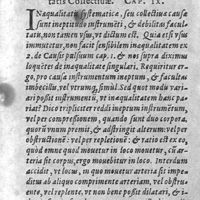 tatis Collectiuæ. CAP. IX.
INaqualitatis systematica, seu collectiuæ causæ
sunt ineptitudo instrumenti, & debilitas faculta-
tatu, non tamen vsus, vt dictum est. Quia etsi vsus
immutetur, non facit sensibilem inaqualitatem ex
2. de Causis pulsuum cap. 1. & nos supra diximus
loquentes de inaqualitate singulari. Requiritur er-
go, pro causa instrumentum ineptum, & facultas
imbecillis, vel vtrumq; simul. Sed quot modis vari-
ari potest instrumentum, vt inaqualitatem hanc pa-
riat? Dico tripliciter reddi ineptum instrumentum,
vel per compressionem, quando sunt duo corpora,
quorum vnum premit, & adstringit alterum: vel per
obstructionem: vel per repletionem: & ratio est ex eo,
quod omne quod mouetur in loco mouetur, cum ar-
teria sit corpus, ergo mouebitur in loco. Interdum
accidit, vt locus, in quo mouetur arteria sit impe-
ditus ab aliquo comprimente arteriam, vel obstru-
ente, vel replente, vt non bene possit dilatari, &